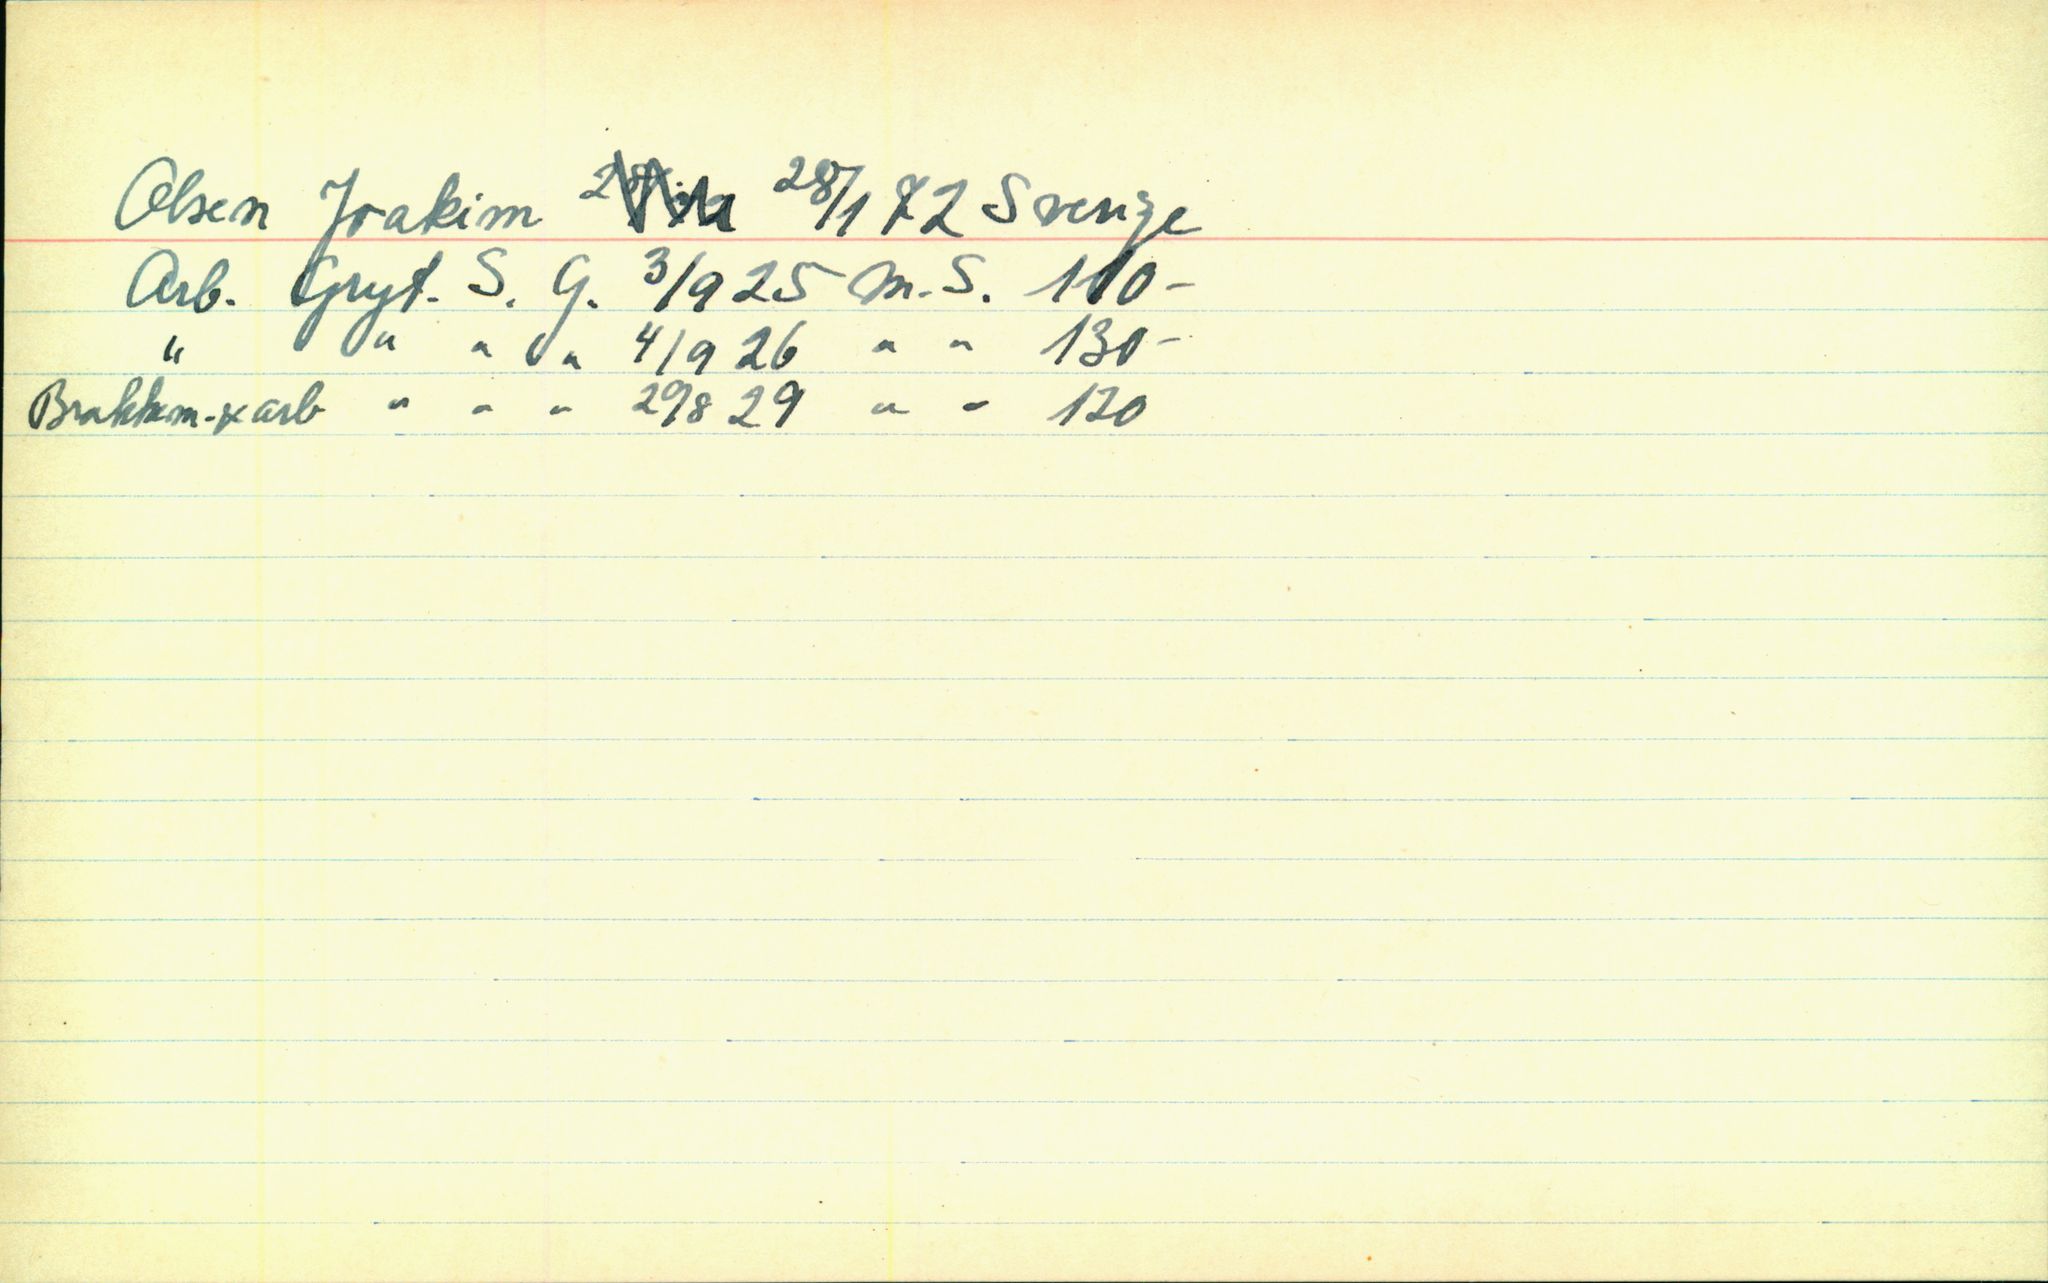 Olsen Joakim 28/1 72 Sverige
Arb. Gryt. S. G. 3/9 25 M. S. 110-
" " " " 4/9 26 " " 130-
Brakkem. & arb " " " 29/8 29 " " 120